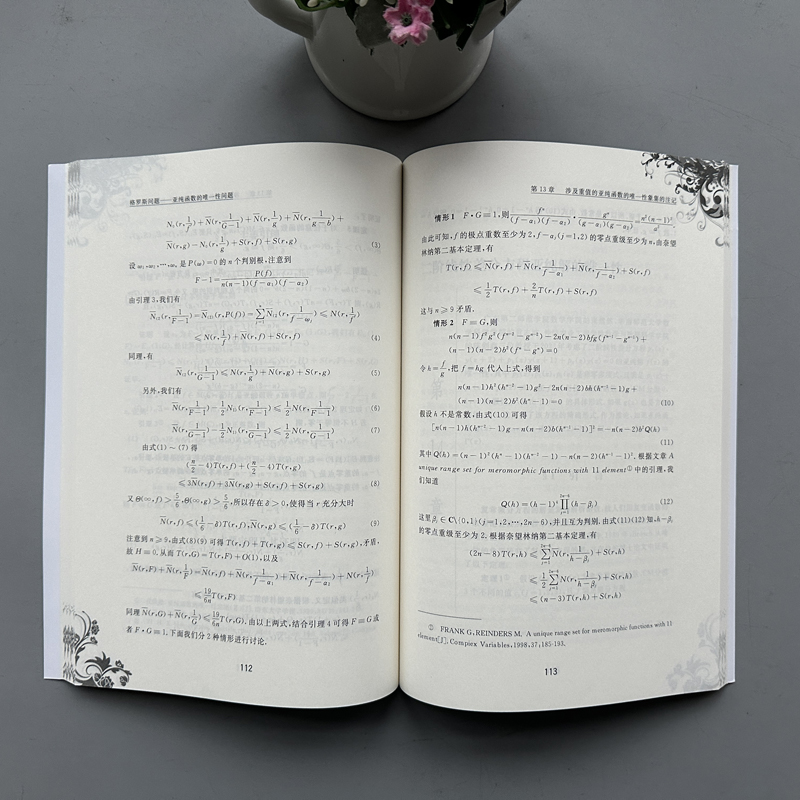 格罗斯问题——亚纯函数的唯一性问题
N₁(r,1/f′)+N̅(r,1/(G−1))+N̅(r,1/g)+N̅(r,1/(g−b))+
N̅(r,g)−N₁(r,1/f′)+S(r,f)+S(r,g) (3)
设 w₁,w₂,⋯,wₙ 是 P(w)=0 的 n 个判别根,注意到
F−1=P(f)/(n(n−1)(f−a₁)(f−a₂))
由引理 3,我们有
≤N(r,1/f)+N̅(r,f)+S(r,f) (4)
同理,有
≤N(r,1/g)+N̅(r,g)+S(r,g) (5)
另外,我们有
≤1/2 N(r,1/(F−1)) (6)
≤1/2 N(r,1/(G−1)) (7)
由式(1)~(7)得
(n/2−4)T(r,f)+(n/2−4)T(r,g)
≤3N̅(r,f)+3N̅(r,g)+S(r,f)+S(r,g) (8)
又Θ(∞,f)>5/6,Θ(∞,g)>5/6,所以存在δ>0,使得当 r 充分大时
N̅(r,f)≤(1/6−δ)T(r,f),N̅(r,g)≤(1/6−δ)T(r,g) (9)
注意到 n≥9,由式(8)(9)可得 T(r,f)+T(r,g)≤S(r,f)+S(r,g),矛盾,
故 H≡0.从而 T(r,G)=T(r,F)+O(1),以及
N̅(r,F)+N̅(r,1/F)=N̅(r,f)+N̅(r,1/(f−a₁))+N̅(r,1/(f−a₂))+N̅(r,1/f)
≤19/6n T(r,F)
同理 N̅(r,G)+N̅(r,1/G)≤19/6n T(r,G).由以上两式,结合引理 4 可得 F≡G或
者 F·G≡1.下面我们分 2 种情形进行讨论.
112
第 13 章 涉及重值的亚纯函数的唯一性象集的注记
情形 1 F·G≡1,则 fⁿ/((f−a₁)(f−a₂))·gⁿ/((g−a₁)(g−a₂))=
由此可知,f 的极点重数至少为 2,f−aⱼ(j=1,2)的零点重级至少为 n,由奈望
林纳第二基本定理,有
T(r,f)≤N̅(r,f)+N̅(r,1/(f−a₁))+N̅(r,1/(f−a₂))+S(r,f)
≤1/2 T(r,f)+2/n T(r,f)+S(r,f)
这与 n≥9 矛盾.
情形 2 F≡G,则
n(n−1)f²g²(fⁿ⁻²−gⁿ⁻²)−2n(n−2)bfg(fⁿ⁻¹−gⁿ⁻¹)+
(n−1)(n−2)b²(fⁿ−gⁿ)=0
令 h=f/g,把 f=hg 代入上式,得到
n(n−1)h²(hⁿ⁻²−1)g²−2n(n−2)bh(hⁿ⁻¹−1)g+
(n−1)(n−2)b²(hⁿ−1)=0 (10)
假设 h 不是常数,由式(10)可得
[n(n−1)h(hⁿ⁻²−1)g−n(n−2)b(hⁿ⁻¹−1)]²=−n(n−2)b²Q(h)
(11)
其中 Q(h)=(n−1)²(hⁿ−1)(hⁿ⁻²−1)−n(n−2)(hⁿ⁻¹−1)².根据文章 A
unique range set for meromorphic functions with 11 element① 中的引理,我
们知道
Q(h)=(h−1)⁴∏_{j=1}^{2n−6}(h−βⱼ) (12)
这里 βⱼ∈C\{0,1}(j=1,2,⋯,2n−6),并且互为判别.由式(11)(12)知,h−βⱼ
的零点重级至少为 2.根据奈望林纳第二基本定理,有
(2n−8)T(r,h)≤∑_{j=1}^{2n−6}N̅(r,1/(h−βⱼ))+S(r,h)
≤1/2∑_{j=1}^{2n−6}N(r,1/(h−βⱼ))+S(r,h)
≤(n−3)T(r,h)+S(r,h)
① FRANK G,REINDERS M. A unique range set for meromorphic functions with 11
element[J]. Complex Variables,1998,37:185-193.
113